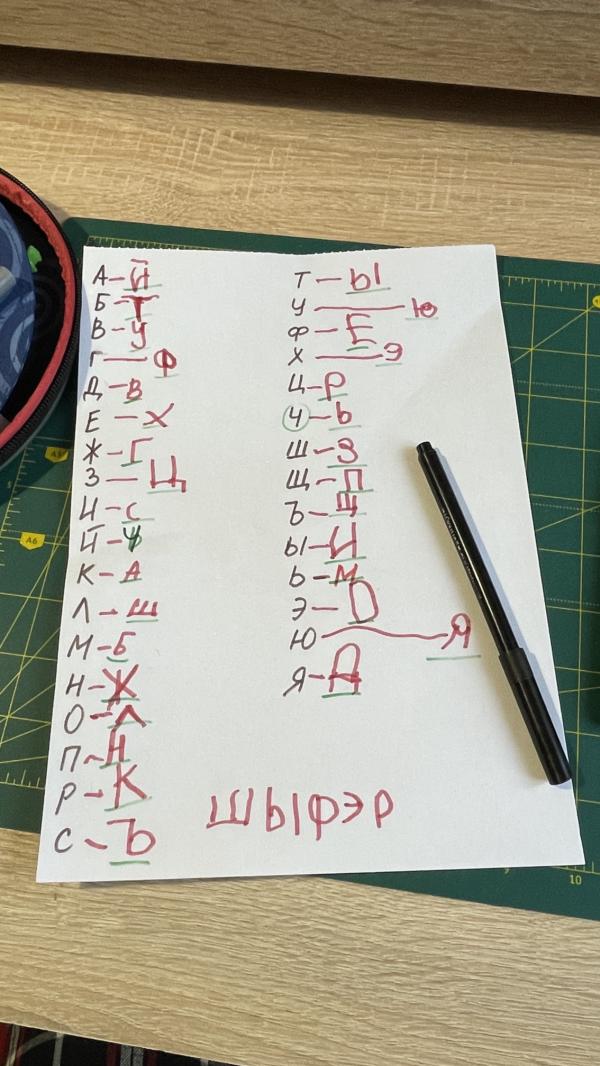 А – Й
Б – Т
В – У
Г – Ф
Д – В
Е – Х
Ж – Г
З – Ц
И – С
Й – Ч
К – А
Л – Ш
М – Б
Н – Ж
О – Л
П – Н
Р – К
С – Ъ
Т – Ы
У – Ю
Ф – Е
Х – Э
Ц – Р
Ч – Ь
Ш – З
Щ – П
Ъ – Щ
Ы – И
Ь – М
Э – О
Ю – Я
Я – Д
ШЫФЭР
A5
A6
10